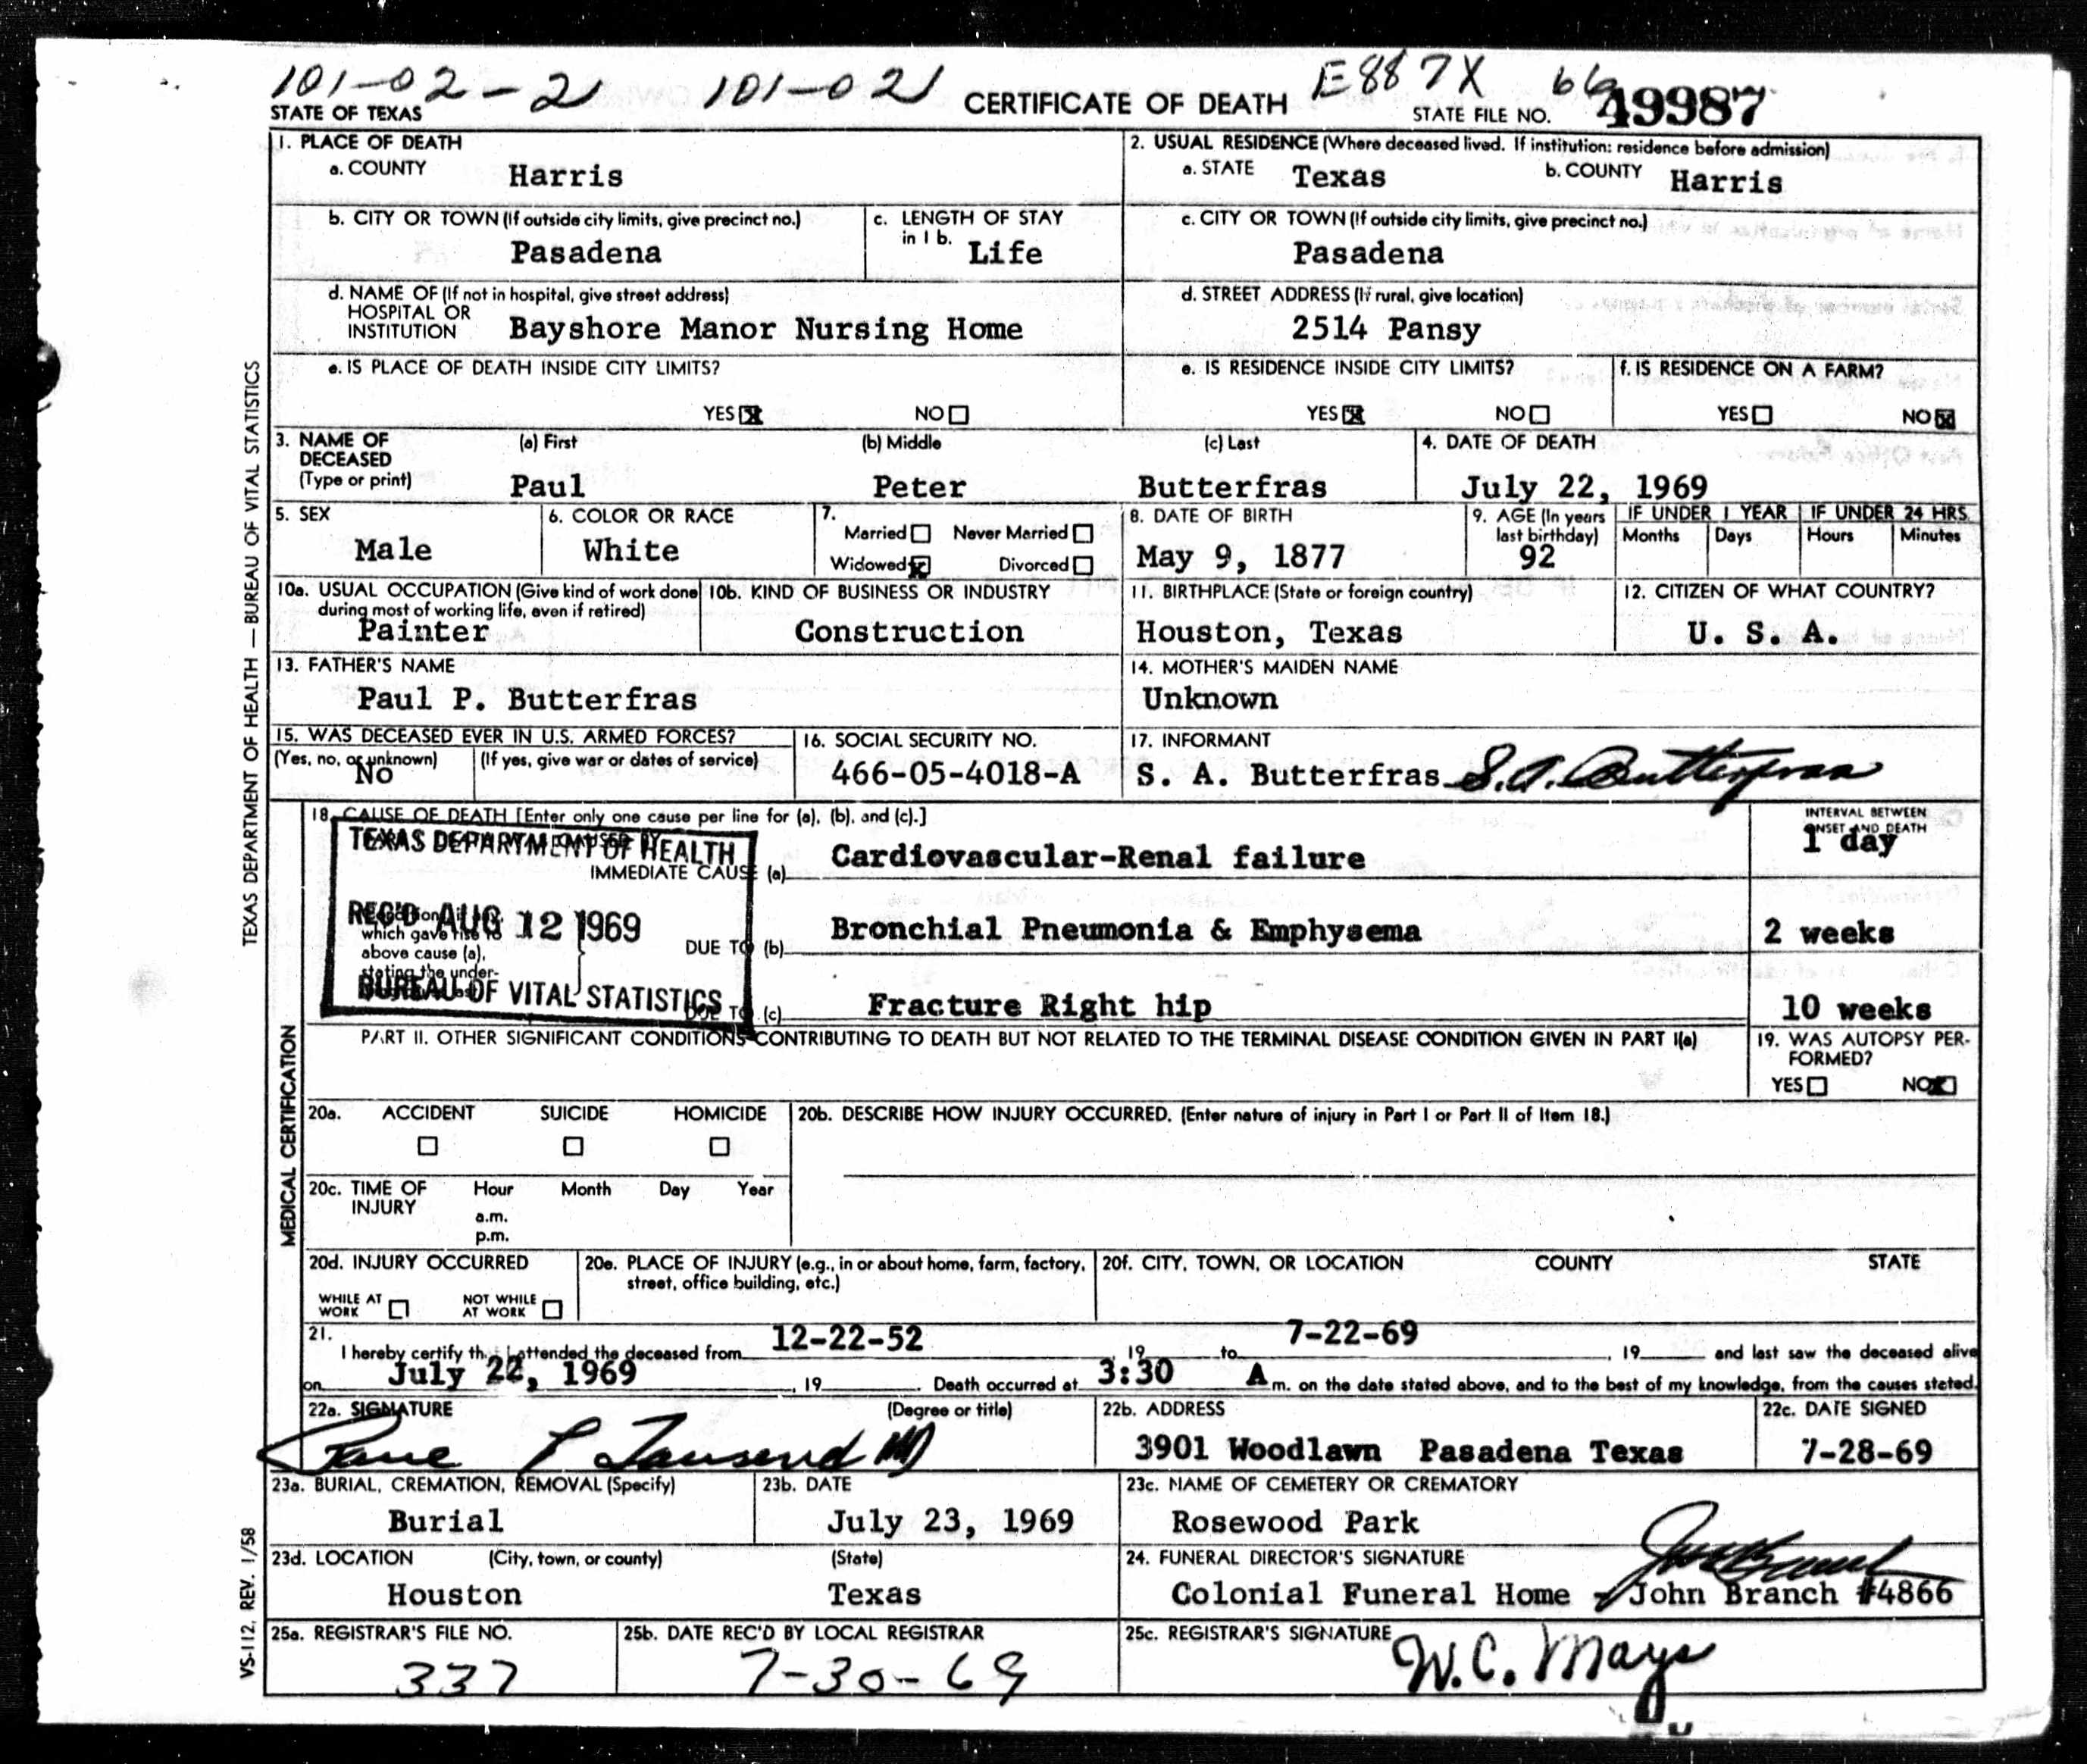 101-02-21 101-021 E887X 66
STATE OF TEXAS CERTIFICATE OF DEATH STATE FILE NO. 49987
1. PLACE OF DEATH
a. COUNTY Harris
2. USUAL RESIDENCE (Where deceased lived. If institution: residence before admission)
a. STATE Texas b. COUNTY Harris
b. CITY OR TOWN (If outside city limits, give precinct no.)
Pasadena
c. LENGTH OF STAY
in 1 b. Life
c. CITY OR TOWN (If outside city limits, give precinct no.)
Pasadena
d. NAME OF (If not in hospital, give street address)
HOSPITAL OR
INSTITUTION Bayshore Manor Nursing Home
d. STREET ADDRESS (If rural, give location)
2514 Pansy
e. IS PLACE OF DEATH INSIDE CITY LIMITS?
YES NO
e. IS RESIDENCE INSIDE CITY LIMITS?
YES NO
f. IS RESIDENCE ON A FARM?
YES NO
3. NAME OF DECEASED (Type or print)
(a) First (b) Middle (c) Last
Paul Peter Butterfras
4. DATE OF DEATH
July 22, 1969
5. SEX
Male
6. COLOR OR RACE
White
7.
Married Never Married
Widowed Divorced
8. DATE OF BIRTH
May 9, 1877
9. AGE (In years
last birthday)
92
IF UNDER 1 YEAR IF UNDER 24 HRS.
Months Days Hours Minutes
10a. USUAL OCCUPATION (Give kind of work done
during most of working life, even if retired)
Painter
10b. KIND OF BUSINESS OR INDUSTRY
Construction
11. BIRTHPLACE (State or foreign country)
Houston, Texas
12. CITIZEN OF WHAT COUNTRY?
U. S. A.
13. FATHER'S NAME
Paul P. Butterfras
14. MOTHER'S MAIDEN NAME
Unknown
15. WAS DECEASED EVER IN U.S. ARMED FORCES?
(Yes, no, or unknown) (If yes, give war or dates of service)
No
16. SOCIAL SECURITY NO.
466-05-4018-A
17. INFORMANT
S. A. Butterfras S.A. Butterfras
18. CAUSE OF DEATH [Enter only one cause per line for (a), (b), and (c).]
INTERVAL BETWEEN
ONSET AND DEATH
TEXAS DEPARTMENT OF HEALTH
REC'D AUG 12 1969
BUREAU OF VITAL STATISTICS
IMMEDIATE CAUSE (a) Cardiovascular-Renal failure 1 day
which gave rise to
above cause (a),
stating the under-
DUE TO (b) Bronchial Pneumonia & Emphysema 2 weeks
DUE TO (c) Fracture Right hip 10 weeks
PART II. OTHER SIGNIFICANT CONDITIONS CONTRIBUTING TO DEATH BUT NOT RELATED TO THE TERMINAL DISEASE CONDITION GIVEN IN PART I(a)
19. WAS AUTOPSY PER-
FORMED?
YES NO
20a. ACCIDENT SUICIDE HOMICIDE
20b. DESCRIBE HOW INJURY OCCURRED. (Enter nature of injury in Part I or Part II of Item 18.)
20c. TIME OF
INJURY
Hour Month Day Year
a.m.
p.m.
20d. INJURY OCCURRED
WHILE AT
WORK
NOT WHILE
AT WORK
20e. PLACE OF INJURY (e.g., in or about home, farm, factory,
street, office building, etc.)
20f. CITY, TOWN, OR LOCATION COUNTY STATE
21.
I hereby certify that I attended the deceased from 12-22-52, 19 to 7-22-69, 19 and last saw the deceased alive
on July 22, 1969, 19 . Death occurred at 3:30 A m. on the date stated above, and to the best of my knowledge, from the causes stated.
22a. SIGNATURE (Degree or title)
Tausend MD
22b. ADDRESS
3901 Woodlawn Pasadena Texas
22c. DATE SIGNED
7-28-69
23a. BURIAL, CREMATION, REMOVAL (Specify)
Burial
23b. DATE
July 23, 1969
23c. NAME OF CEMETERY OR CREMATORY
Rosewood Park
23d. LOCATION (City, town, or county) (State)
Houston Texas
24. FUNERAL DIRECTOR'S SIGNATURE
Colonial Funeral Home John Branch #4866
25a. REGISTRAR'S FILE NO.
337
25b. DATE REC'D BY LOCAL REGISTRAR
7-30-69
25c. REGISTRAR'S SIGNATURE
W.C. Mays
TEXAS DEPARTMENT OF HEALTH — BUREAU OF VITAL STATISTICS
MEDICAL CERTIFICATION
VS-112, REV. 1/58